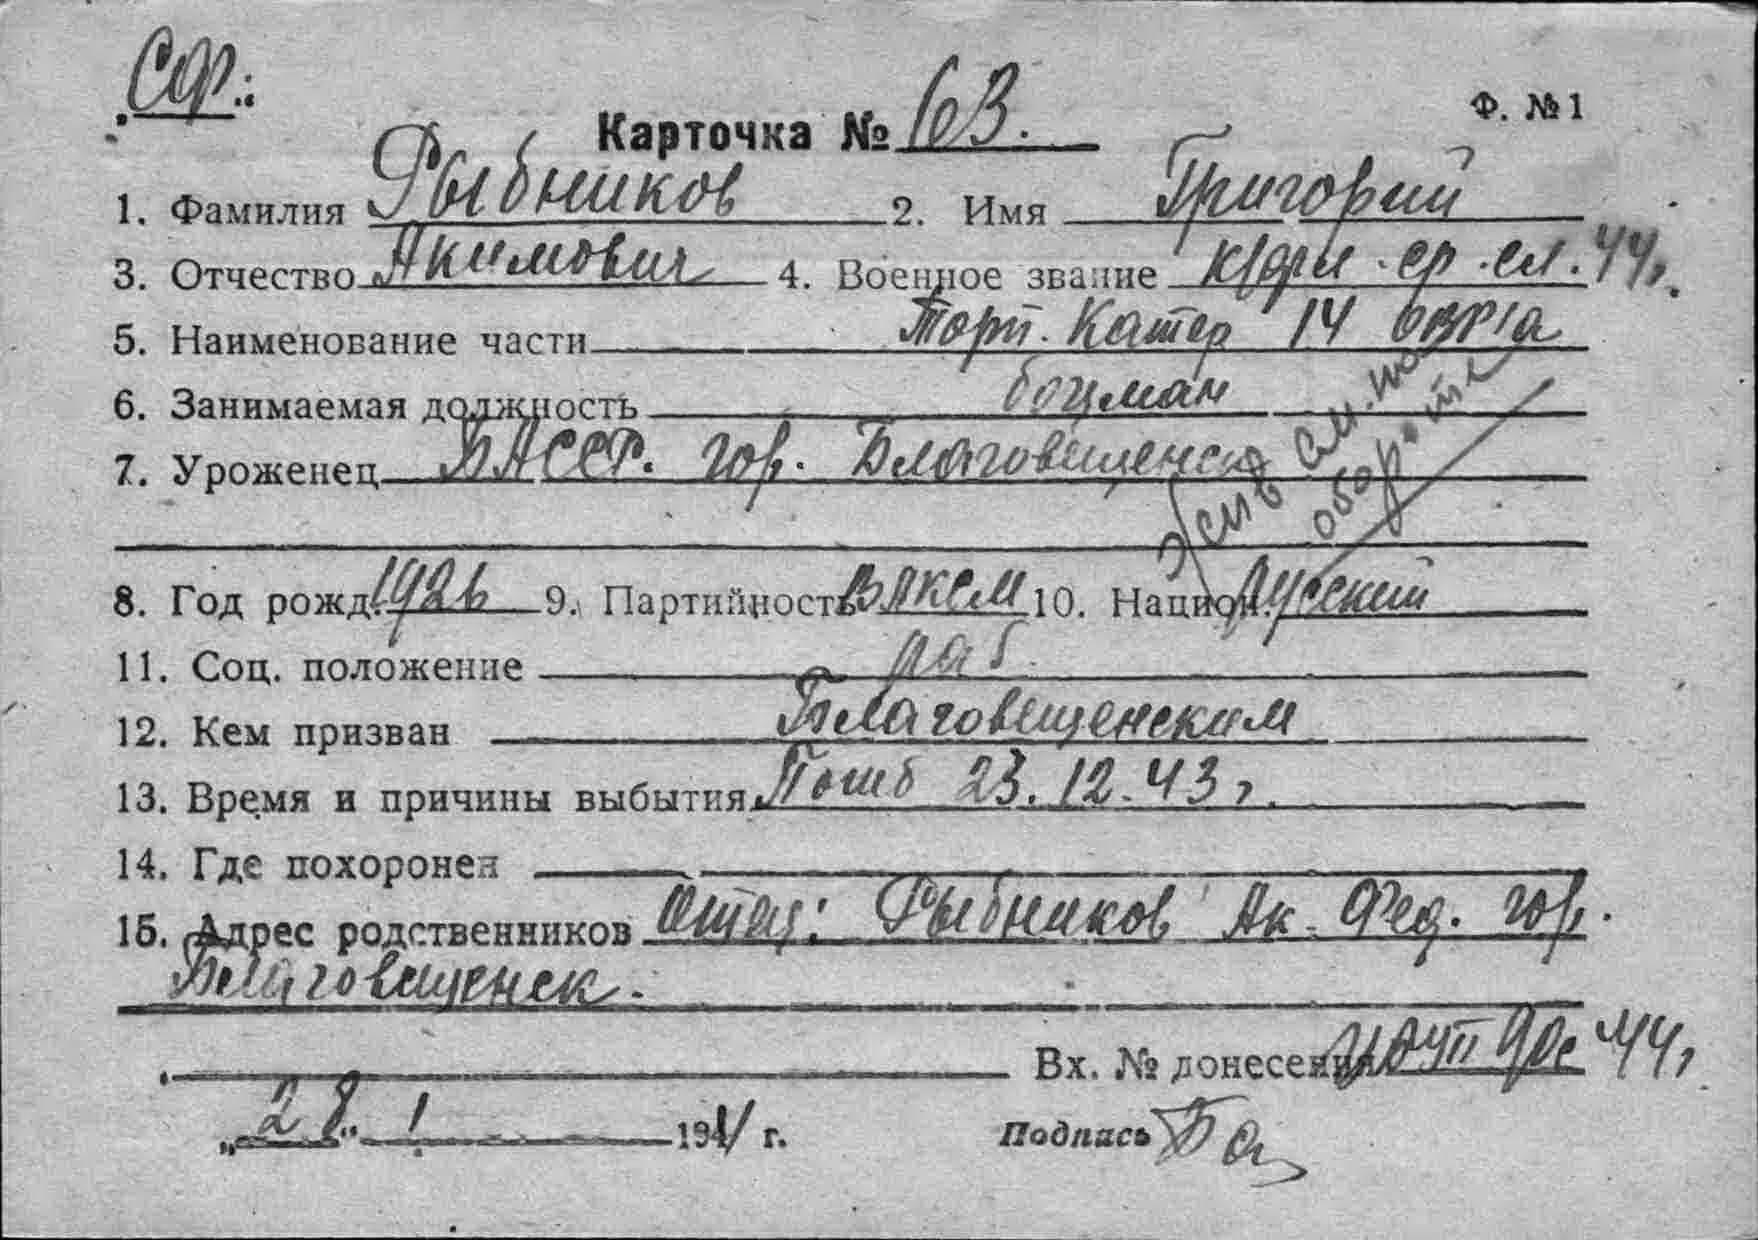 СФ.:
Ф. № 1
Карточка № 63.
1. Фамилия Рыбников 2. Имя Григорий
3. Отчество Акимович 4. Военное звание к/фл. ср. сл. 44г.
5. Наименование части Торп. Катер 14 ОВР'а
6. Занимаемая должность боцман
7. Уроженец БАССР. гор. Благовещенск
см. на
обороте
8. Год рожд. 1926 9. Партийность ВЛКСМ 10. Национ. Русский
11. Соц. положение раб.
12. Кем призван Благовещенским
13. Время и причины выбытия Погиб 23.12.43 г.
14. Где похоронен
15. Адрес родственников Отец: Рыбников Ак. Фед. гор.
Благовещенск.
Вх. № донесения 44г
„28“ I 1944 г. Подпись